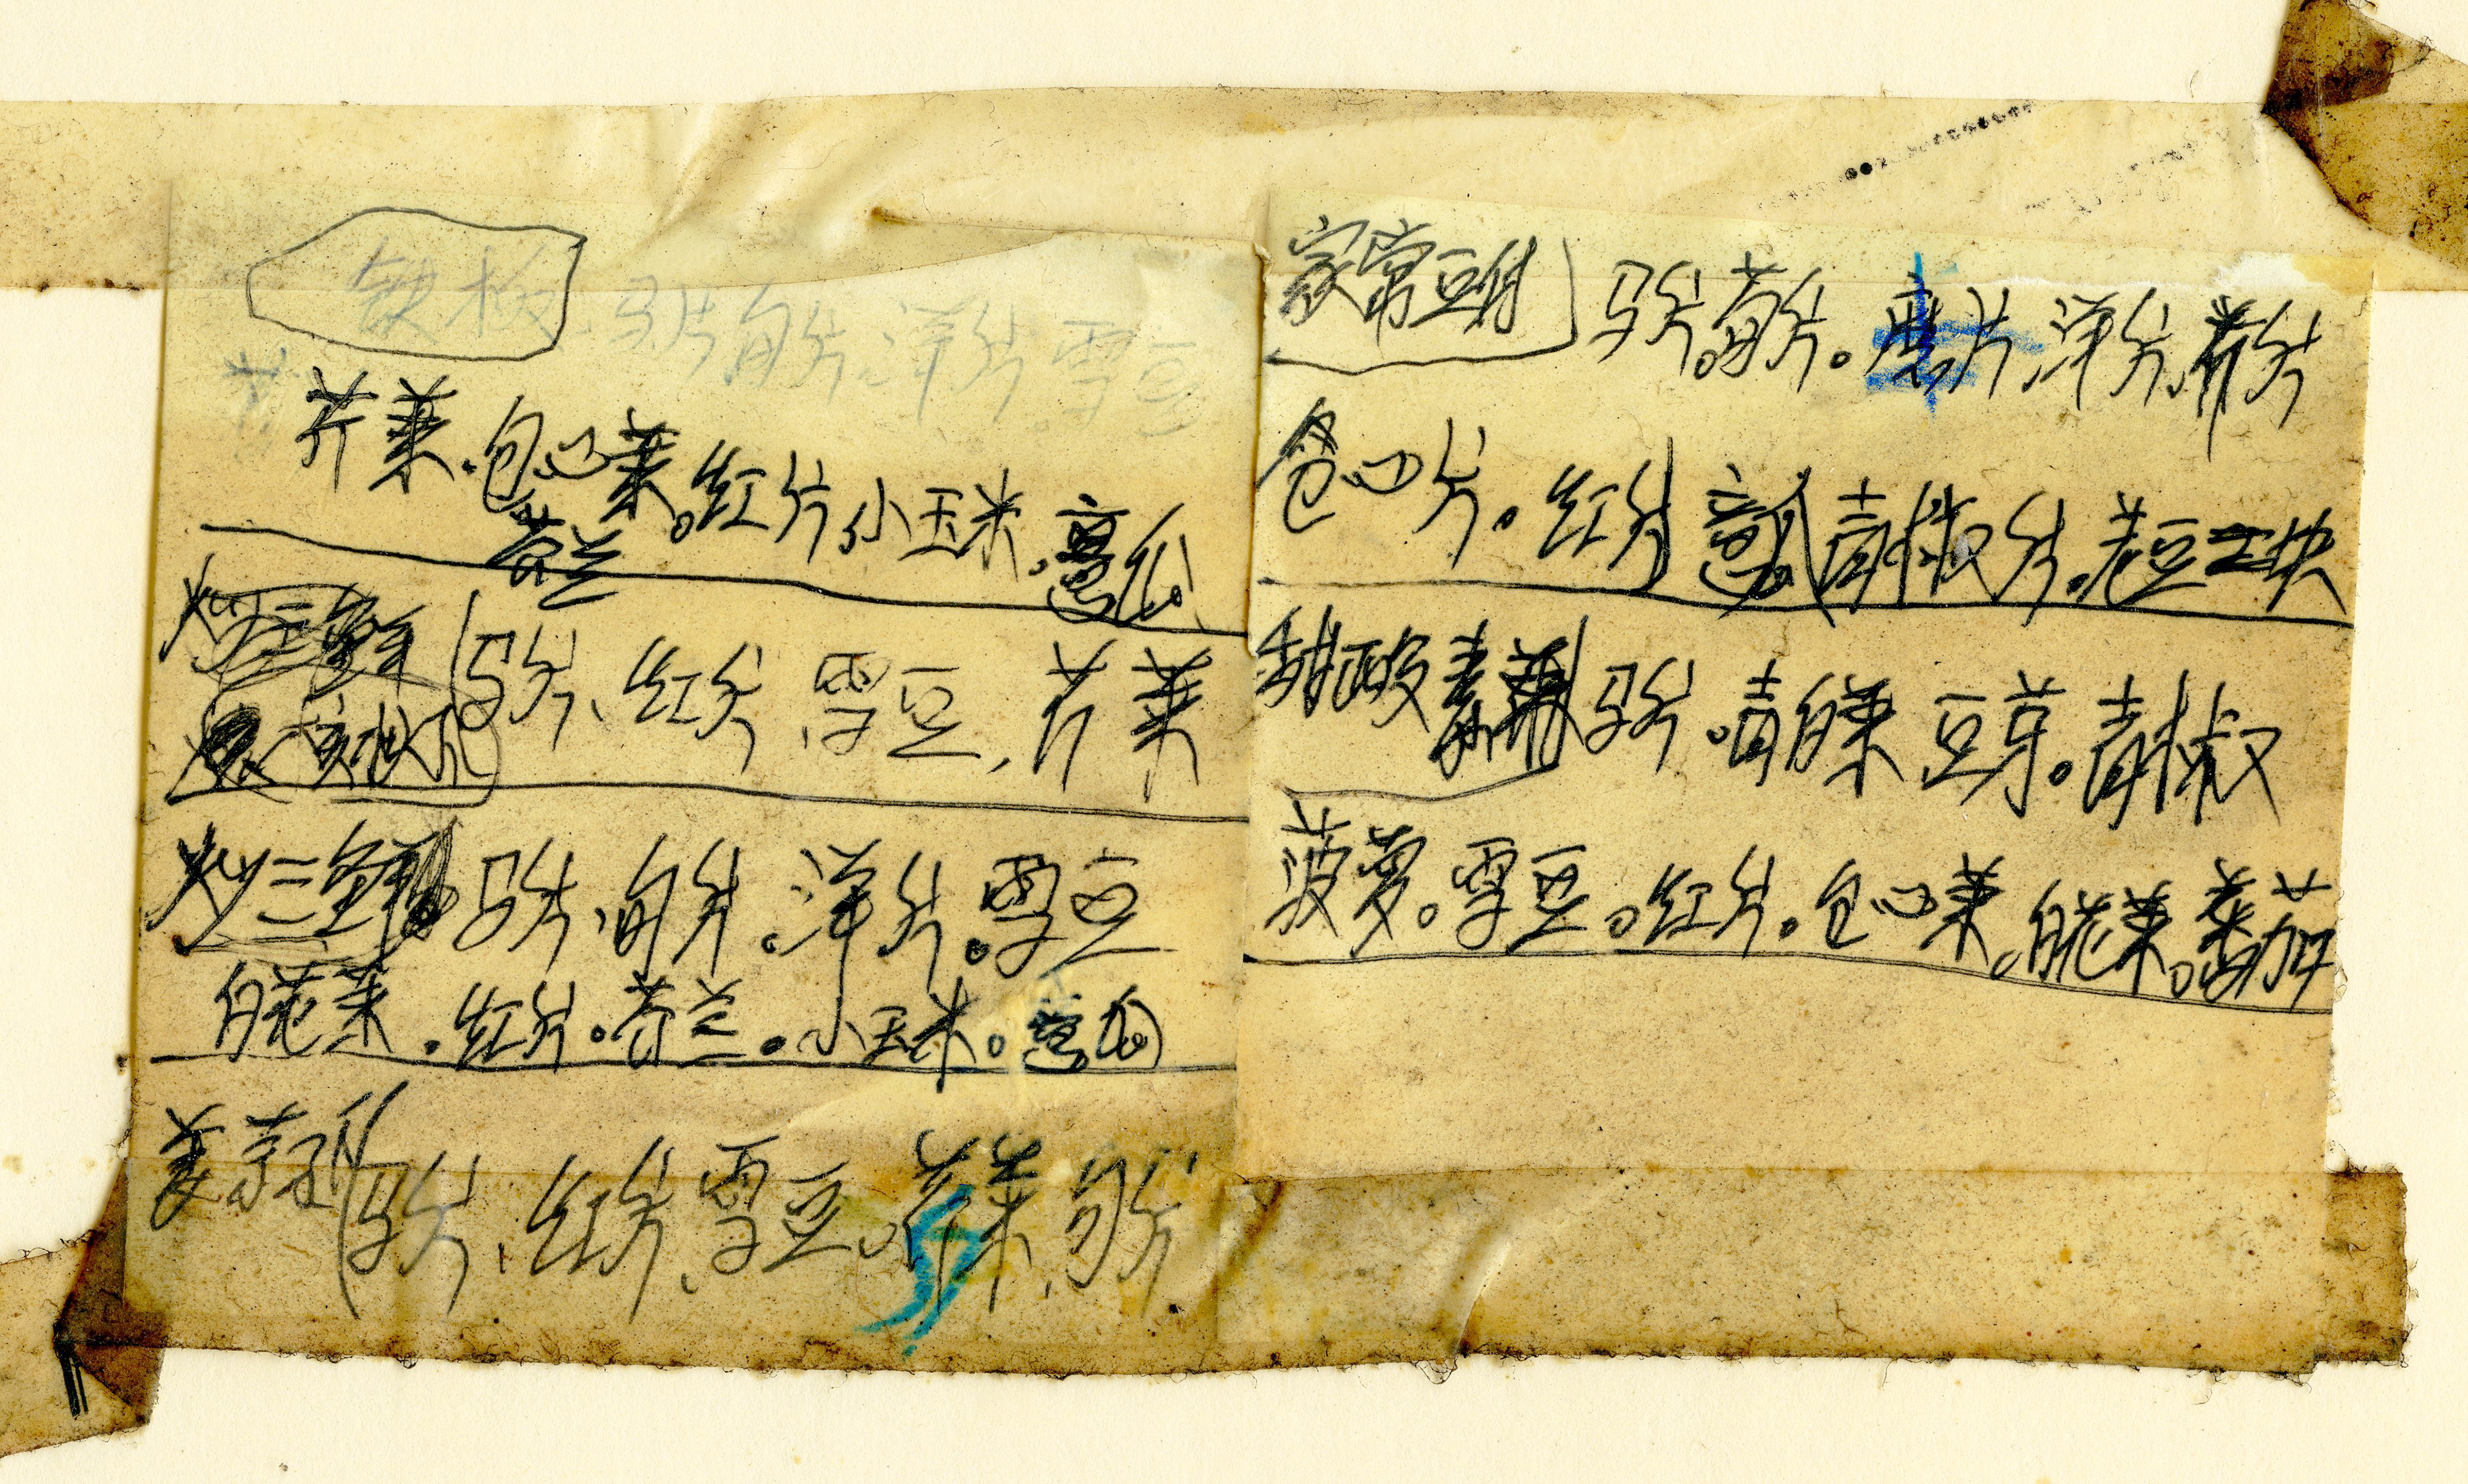 铁板 马片.白片.洋片.雪豆
芹菜.包心菜。红片.小玉米.意瓜
芥兰
炒三鲜 马片、红片、雪豆、芹菜
炒三鲜 马片、白片。洋片。雪豆
白花菜。红片。芥兰。小玉米。意瓜
姜 马片、红片、雪豆。芹菜、白片
家常豆付 马片。白片。磨片、洋片、芹片
包心片。红片 意瓜 青椒片。老豆 块
甜酸素 马片。青白菜 豆芽。青椒
菠萝。雪豆。红片。包心菜。白花菜。番茄